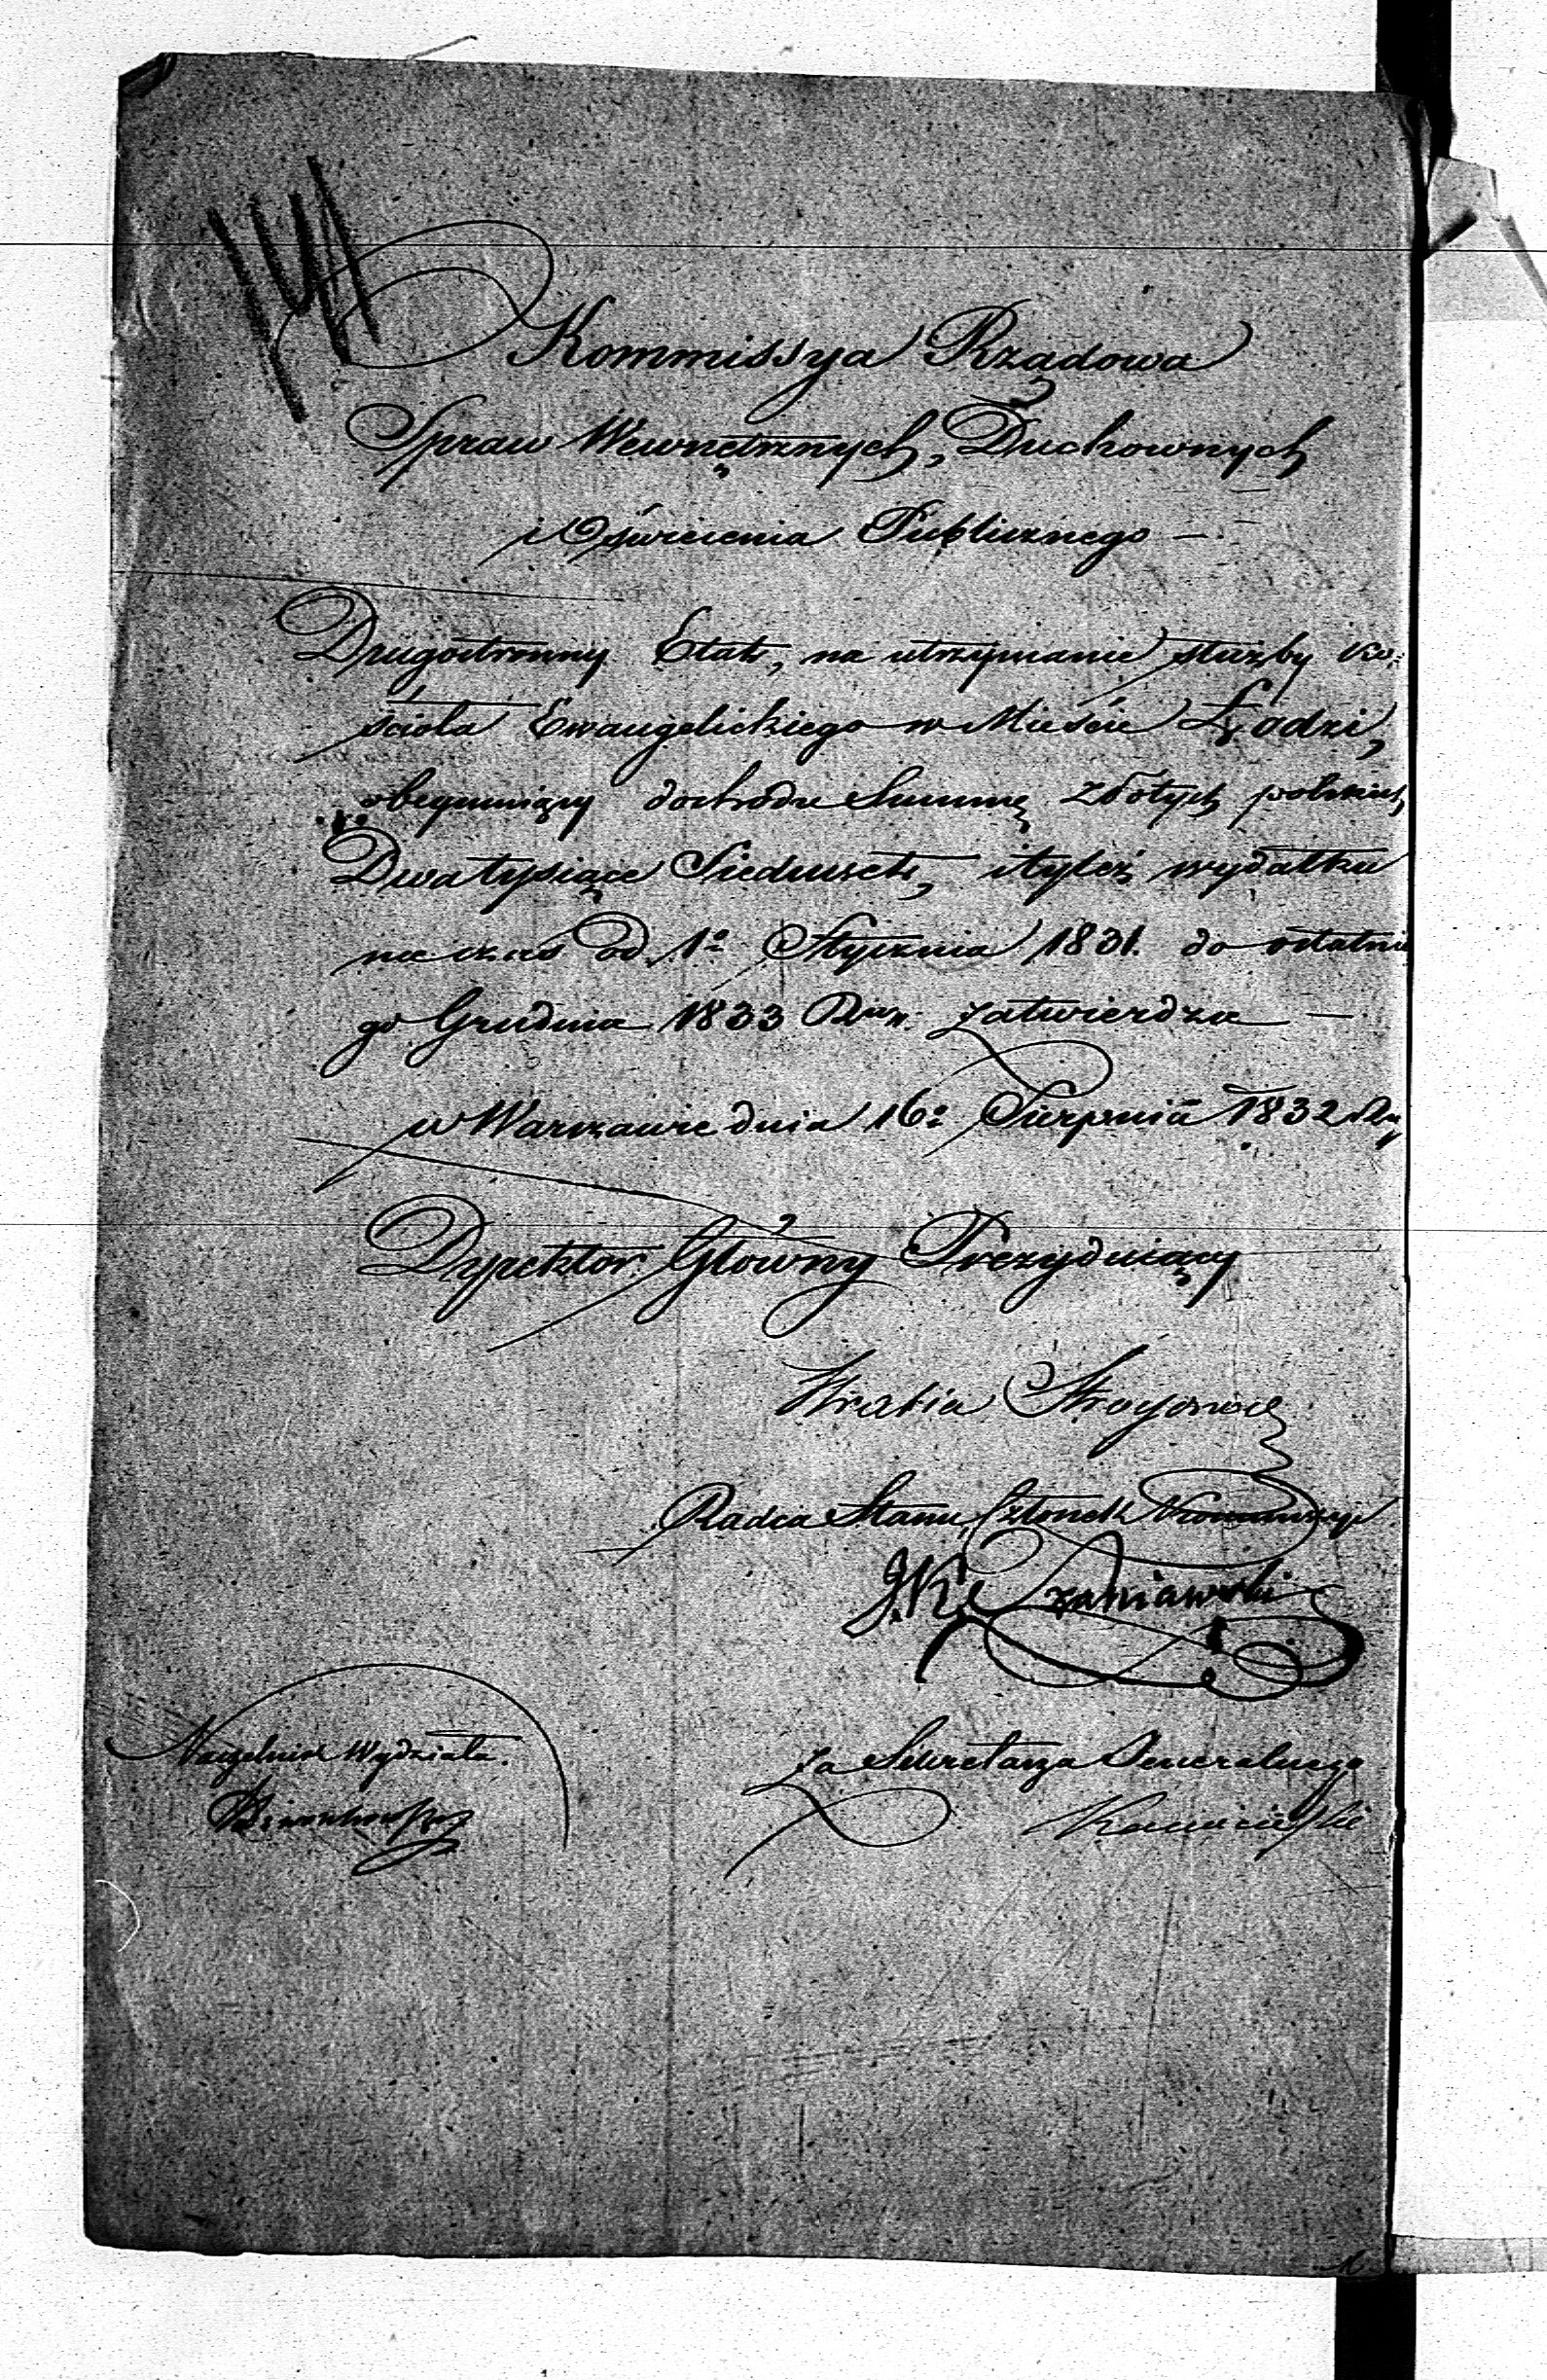 141
Kommissya Rządowa
Spraw Wewnętrznych, Duchownych
i Oświecenia Publicznego —
Drugostronny Etat, na utrzymanie służby Ko=
ścioła Ewangelickiego w Mieście Łodzi,
obeymuiący dochodu Summę złotych polskich
Dwa tysiące Siedmset, i tyleż wydatku
na czas od 1º Stycznia 1831. do ostatnie
go Grudnia 1833 Rku. zatwierdza —
w Warszawie dnia 16º Sierpnia 1832 Rku
Dyrektor Główny Prezyduiący
Hrabia Strogonow
Radca Stanu, Członek Kommissyi
J. K. Szaniawski
Naczelnik Wydziału.
za Sekretarza Generalnego